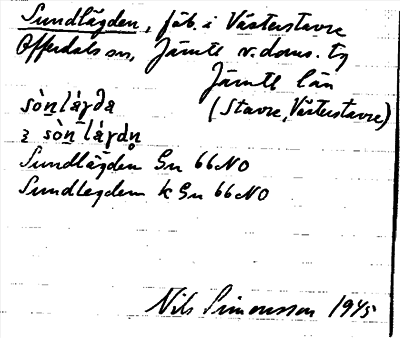 Sundlägden, fäb. i Västerstavre
Offerdals sn, Jämtl. n. doms. tg
Jämtl län
(Stavre, Västerstavre)
sònlá̀γda
ʒ sòn lá̀γdn̥
Sundlägden Gn 66 NO
Sundlegden k Gn 66 NO
Nils Simonsson 1945